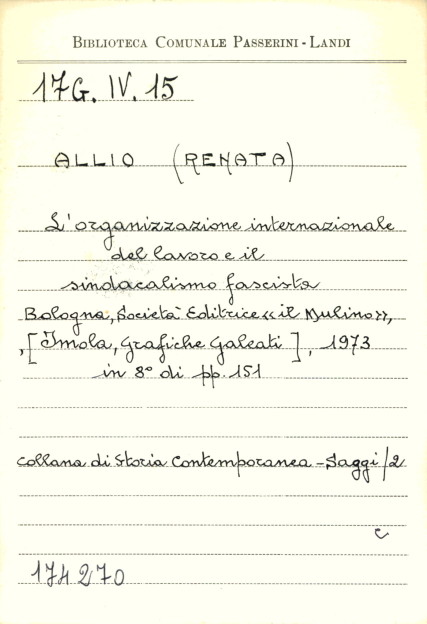 BIBLIOTECA COMUNALE PASSERINI - LANDI
17G. IV. 15
ALLIO (RENATA)
L'organizzazione internazionale
del lavoro e il
sindacalismo fascista
Bologna, Società Editrice «il Mulino»,
,[Imola, Grafiche Galeati], 1973
in 8° di pp. 151
Collana di Storia Contemporanea - Saggi/2
c
174270